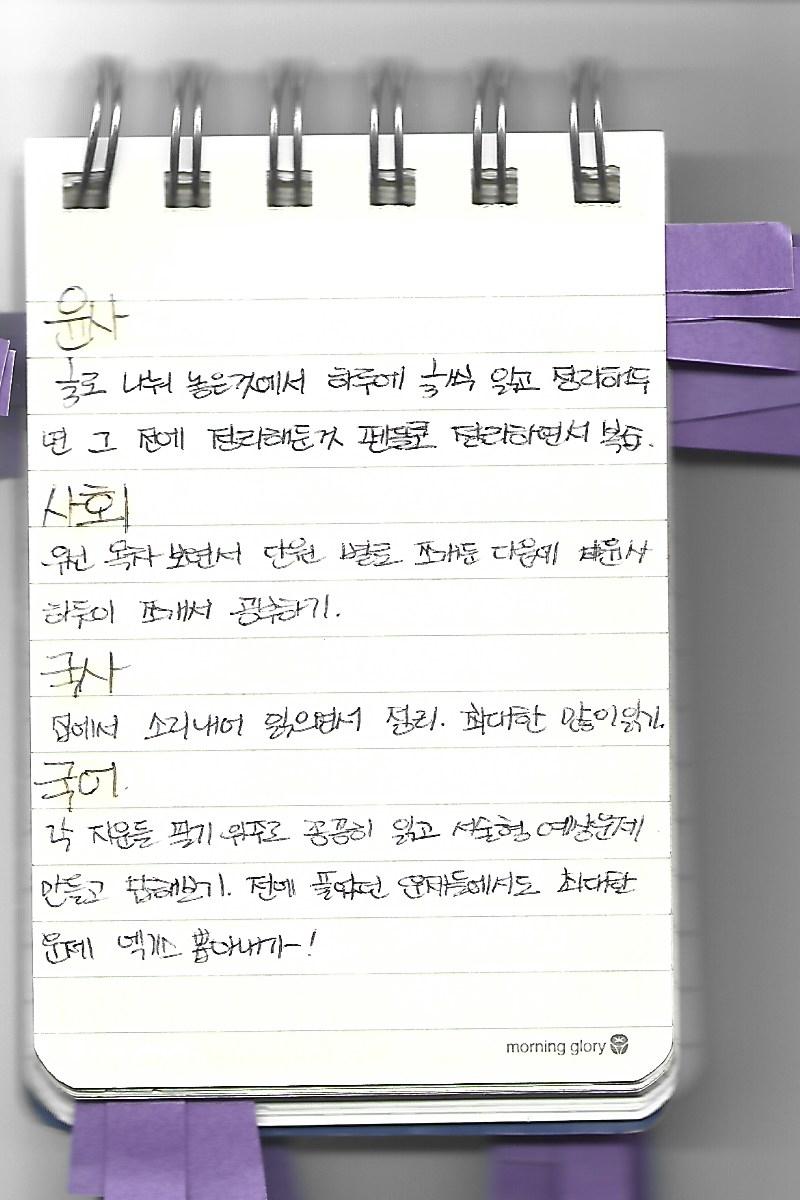 윤사
글로 나눠 놓은것에서 하루에 글씩 읽고 정리하두
면 그 전에 정리해둔거 펜들로 정리하면서 복습.
사회
우선 목차 보면서 단원 별로 쪼개둔 다음에
하루에 쪼개서 공부하기.
국사
집에서 소리내어 읽으면서 정리. 최대한 많이 읽기.
국어.
각 지문들 필기 위주로 꼼꼼히 읽고 서술형 예상문제
만들고 답해보기. 전에 풀었던 문제들에서도 최대한
문제 엑기스 뽑아내기~!
morning glory